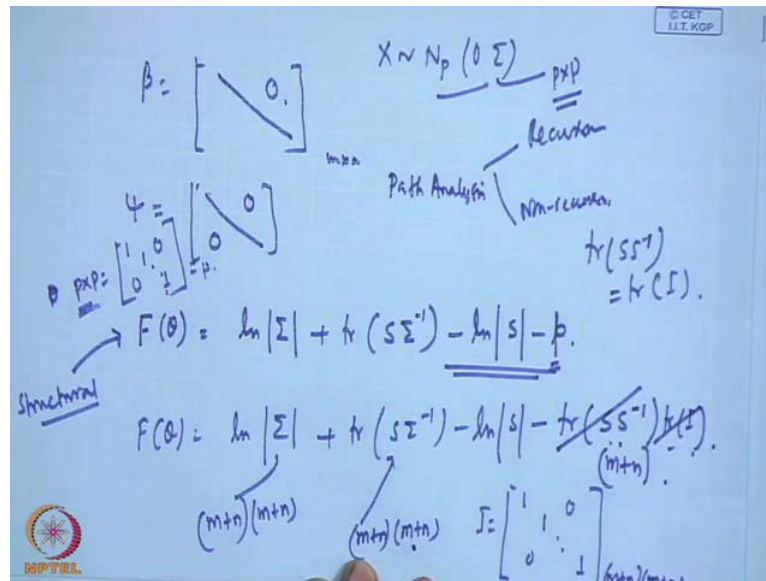 © CET
I.I.T. KGP
β = [ 0 ] m×n
X ~ Np (0 Σ) p×p
Path Analysis
Recursion
ψ = [ 0 0 ]
p×p = [ 1 1 0 0 1 ] = p.
tr(SS⁻¹)
= tr(I).
Structural
F(θ) = ln|Σ| + tr (SΣ⁻¹) - ln|S| - p.
F(θ) = ln|Σ| + tr (SΣ⁻¹) - ln|S| - tr(SS⁻¹) tr(I).
(m+n)
(m+n)(m+n)
(m+n)(m+n)
I = [ 1 1 0 0 1 ] (m+n)(m+n)
NPTEL